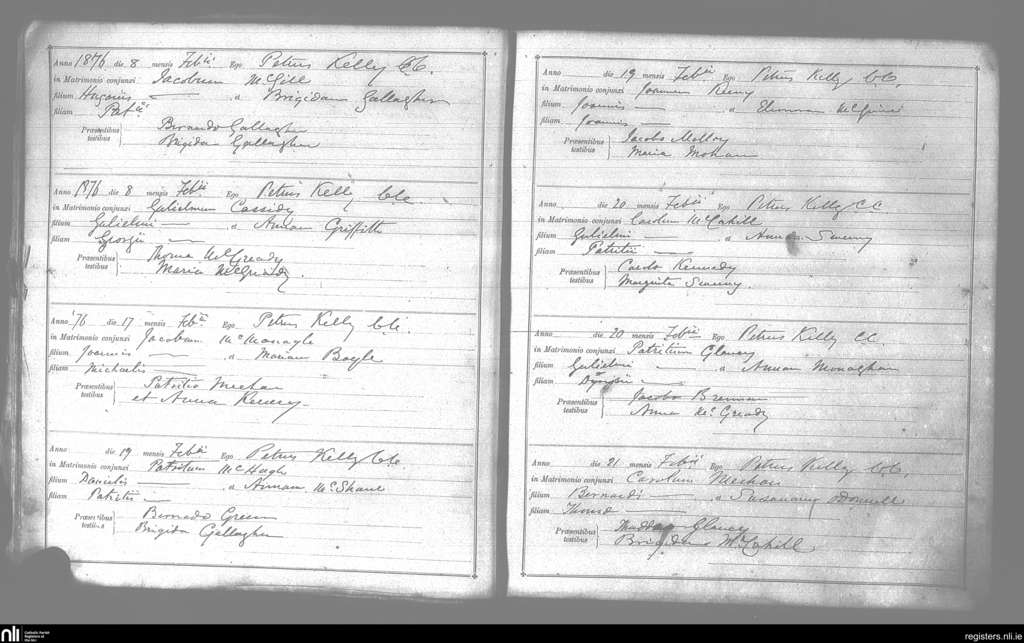 Anno 1876 die 8 mensis Feb[ii] Ego Petrus Kelly CC.
in Matrimonio conjunxi Jacobum McGill
filium Hugonis — a Brigidam Gallagher
filiam Pat[ii]
Præsentibus testibus Bernardo Gallagher
Brigida Gallagher
Anno 1876 die 8 mensis Feb[ii] Ego Petrus Kelly CC
in Matrimonio conjunxi Gulielmum Cassidy
filium Gulielmi — a Annam Griffith
filiam Georgii —
Præsentibus testibus Thoma McGready
Maria McGready.
Anno '76 die 17 mensis Feb[ii] Ego Petrus Kelly CC.
in Matrimonio conjunxi Jacobum McMonagle
filium Joannis — a Mariam Boyle
filiam Michaelis
Præsentibus testibus Patritio Meehan
et Anna
Anno die 19 mensis Feb[ii] Ego Petrus Kelly CC.
in Matrimonio conjunxi Patritium McHugh
filium Danielis — a Annam McShane
filiam Patritii —
Præsentibus testibus Bernardo Green
Brigida Gallagher
Anno die 19 mensis Feb[ii] Ego Petrus Kelly CC.
in Matrimonio conjunxi Joannem
filium Joannis — a
filiam Joannis —
Præsentibus testibus Jacobo Molloy
Maria Mohan
Anno die 20 mensis Feb[ii] Ego Petrus Kelly CC
in Matrimonio conjunxi Carolum McCahill
filium Gulielmi — a Annam Sweeny
filiam Patritii —
Præsentibus testibus Carolo Kennedy
Margarita Sweeny.
Anno die 20 mensis Feb[ii] Ego Petrus Kelly CC.
in Matrimonio conjunxi Patritium Glancy
filium Gulielmi — a Annam Monaghan
filiam —
Præsentibus testibus Jacobo Brennan
Anna McGready
Anno die 21 mensis Feb[ii] Ego Petrus Kelly CC.
in Matrimonio conjunxi Carolum Meehan
filium Bernardi — a Susannam O'Donnell
filiam Thomæ —
Præsentibus testibus Glancy
Brigida McCahill
nli Catholic Parish Registers at the NLI
registers.nli.ie